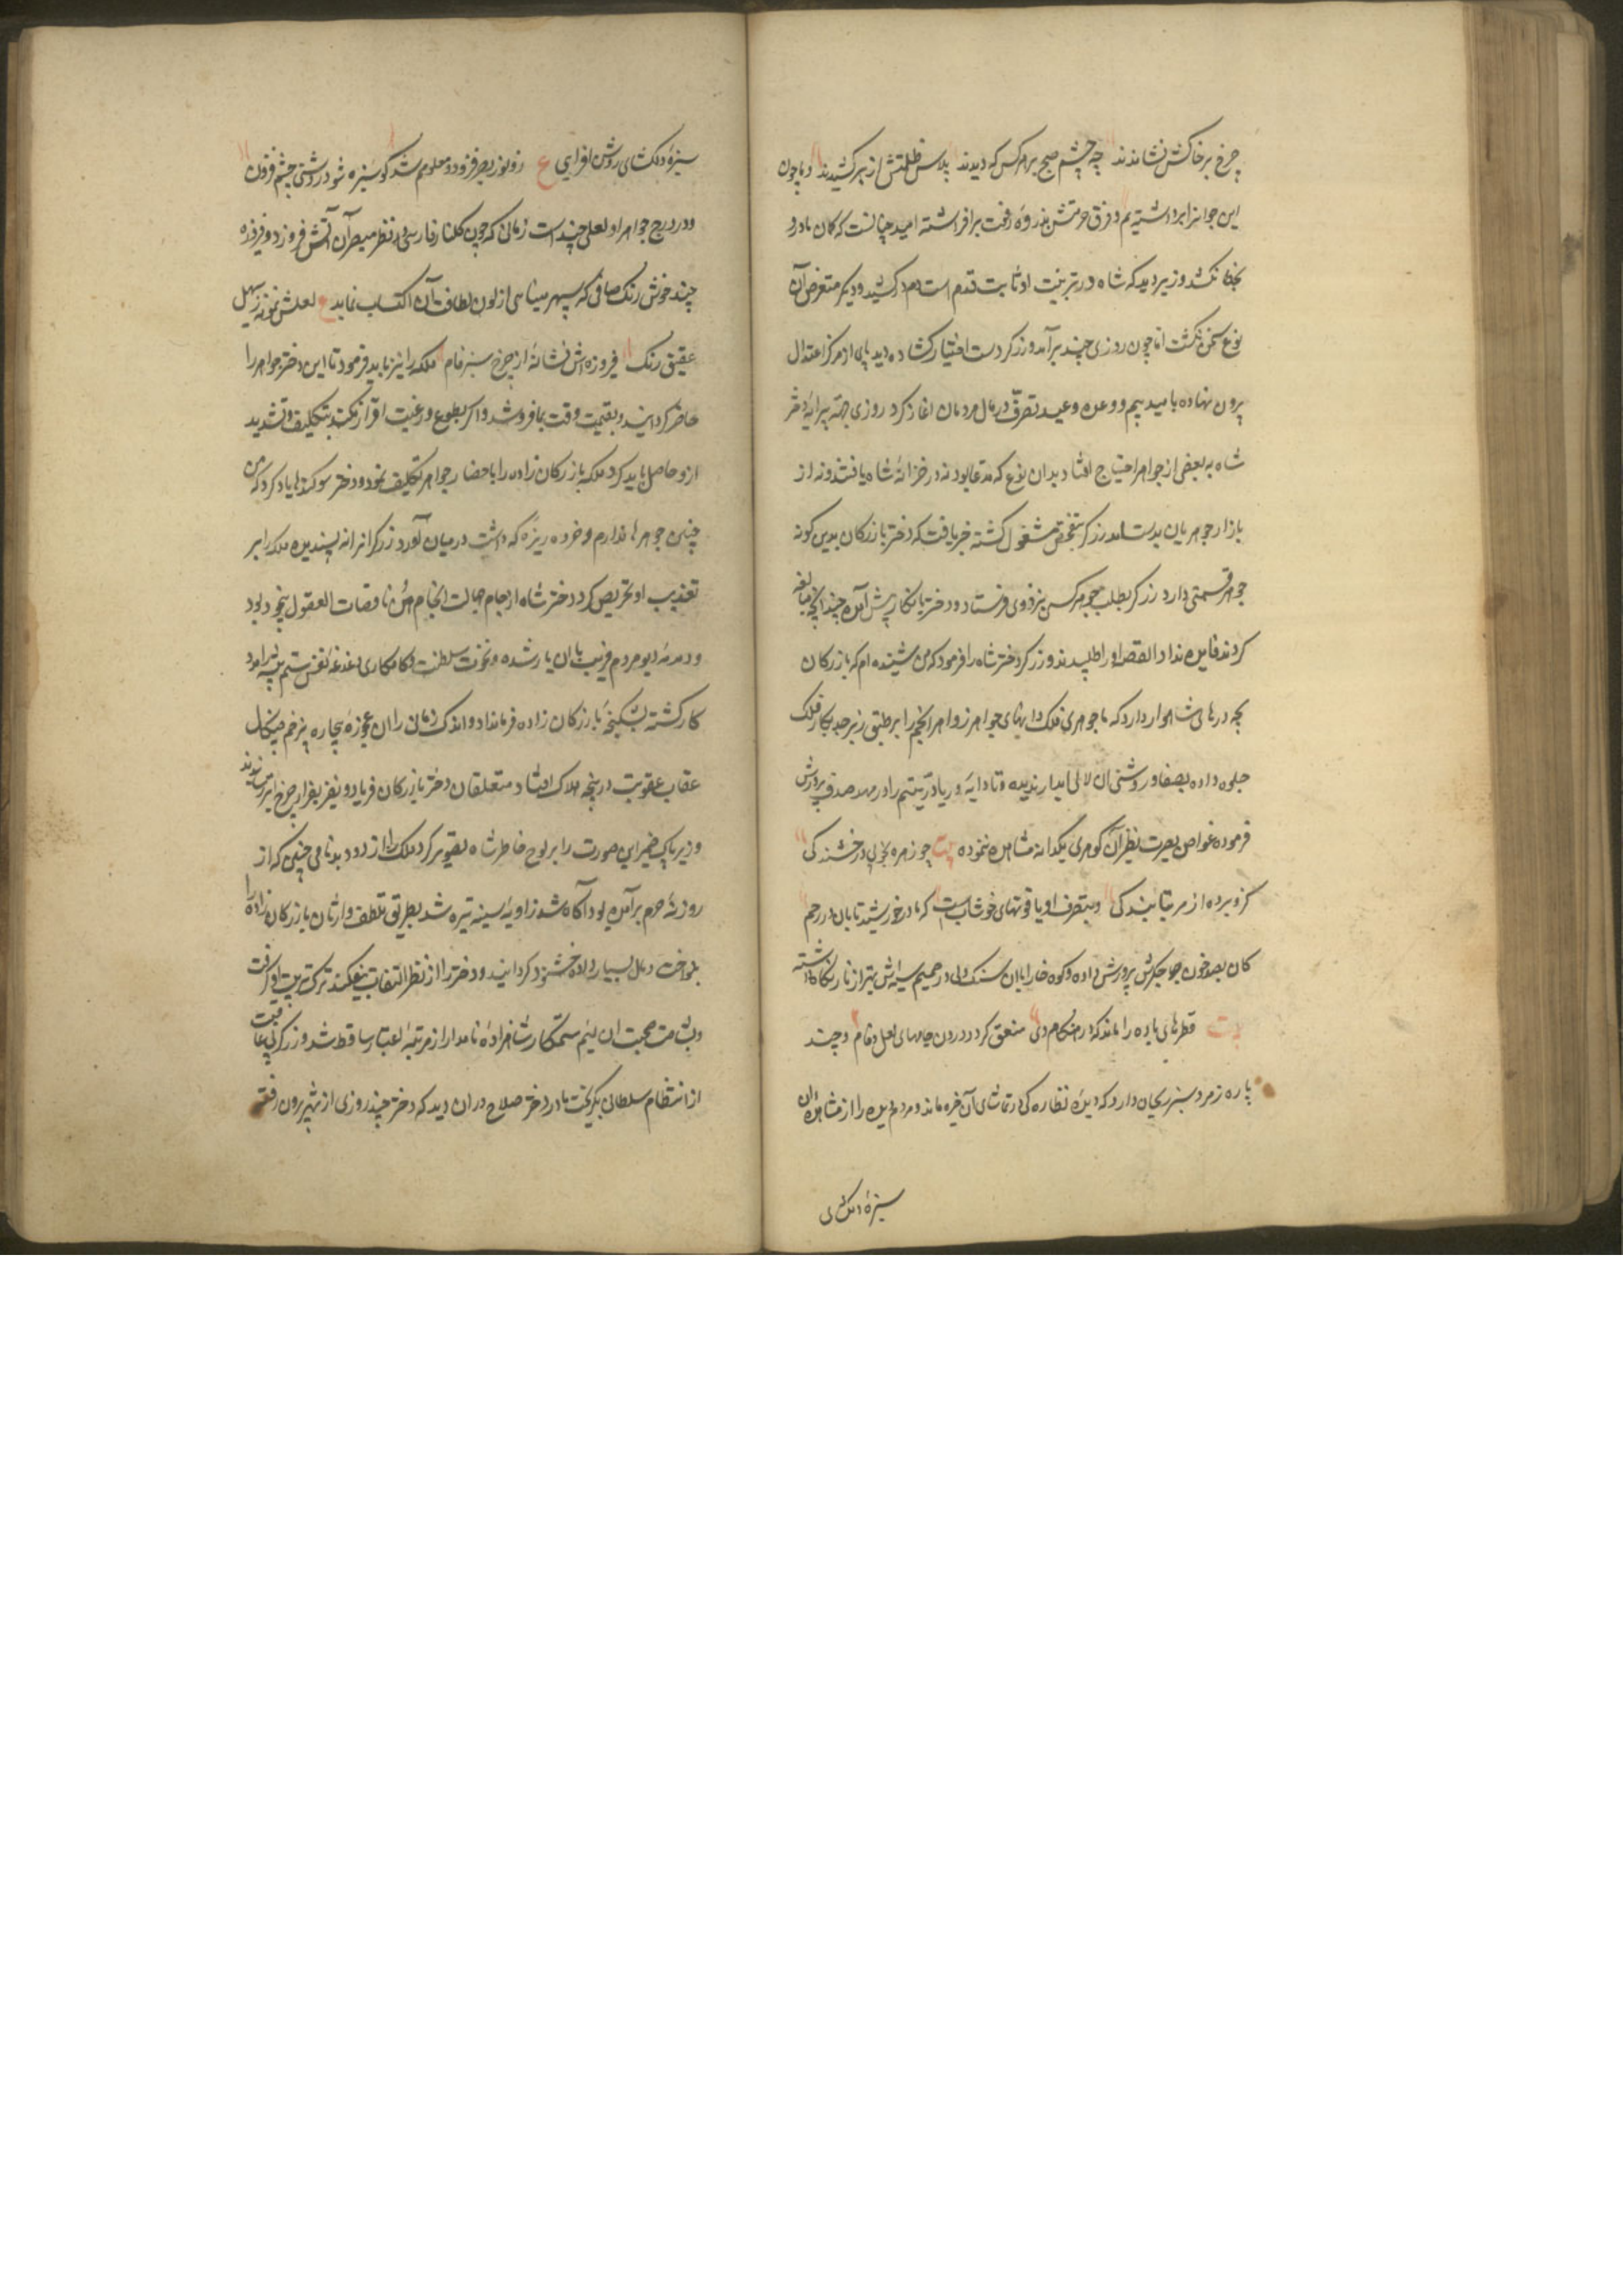 چرخ بر خاکش نشاندند چه چشم صبح بر هر کس که دیدند پلاس ظلمتش از سر کشیدند و ما چون
این جوانرا برداشته‌یم و فرق حرمتش بذروه رفعت برافراشته امید چنانست که کان ما درو
بخطا نکشد وزیر دید که شاه در تربیت او ثابت قدم است دم در کشید و دیکر متعرض آن
نوع سخن نکشت اما چون روزی چند برآمد و زرکر دست اختیار کشاده دید پای از مرکز اعتدال
بیرون نهاده بامید و بیم و وعده و وعید تصرف در مال مردمان اغاز کرد روزی جهة پیرایه دختر
شاه به بعضی از جواهر احتیاج افتاد بدان نوع که مدعا بود نه در خزانه شاه یافتند و نه از
بازار جوهریان بدست آمد زرکر بتفحص مشغول کشته خبر یافت که دختر بازرکان بدین کونه
جوهر قسمتی دارد زرکر بطلب جوهر کس نزد وی فرستاد و دختر بانکار پیش آمده چندانچه مبالغه
کردند فایده نداد القصه او را طلبیدند و زرکر دختر شاه را فرمود که من شنیده ام که بازرکان
بچه درهای شاهوار دارد که تا جوهری فلک دانهای جواهر زواهر انجم را بر طبق زبرجد نکار فلک
جلوه داده بصفا و روشنی ان لالی ابدار ندیده و تا دایه دریا در یتیم را در مهد صدف پرورش
فرموده غواص بصیرت نظیر آن کوهری یکدانه مشاهده ننموده بیت چو زهره بخوبی و رخشندکی
کرو برده از مه بتابندکی و بتصرف او یاقوتهای خوشاب است که مادر خورشید تابان در رحم
کان بصد خون جکرش پرورش داده و کوه خارا با ان سنک دلی در صمیم سینه‌اش بهتر از نار نکاه داشته
بیت قطرهای باده را ماند که در هنکام دی منعقد کردد درون جامهای لعل فام و چند
پاره زمرد سبز ریحان دارد که دیده نظاره کی در تماشای آن خیره ماند و مردم دیده را از مشاهده ان
سبزه دلکشای
سبزه دلکشای روشن افزایی ع زو نور بصر فزود و معلوم شد کو سبزه شود روشنی چشم فزون
و در درج جواهر او لعلی چند است زمانی که چون کلنار فارسی در نظر مبصر آن آتش فروزد و فیروزه
چند خوش رنک صافی که سپهر مینایی از لون لطافت آن اکتساب نماید ع لعلش نمونه ز سهیل
عقیق رنک فیروزه اش نشانه از چرخ سبز فام ملکه را نیز باید فرمود تا این دختر جواهر را
حاضر کردانید و بقیمت وقت بما فروشد و اکر بطوع و رغبت اقرار نکند بتکلیف و تشدید
ازو حاصل باید کرد ملکه بازرکان زاده را باحضار جواهر تکلیف نمود و دختر سوکندها یاد کرد که من
چنین جوهرها ندارم و خرده ریزه که داشت در میان آورد زرکر انرا نه پسندیده ملکه را بر
تعذیب او تحریص کرد دختر شاه از جام جهالت انجام هن ناقصات العقول بیخود بود
و دمدمه دیو مردم فریب با ان یار شده و نخوت سلطنت و کامکاری دغدغه نفس ستم پیشه را مدد
کار کشته بشکنجه بازرکان زاده فرمانداد و اندک زمانی را ان عجوزه بیچاره بزخم چنکال
عقاب عقوبت در پنجه هلاک افتاد و متعلقان دختر بازرکان فریاد و نفیر بفراز چرخ اثیر رسانیدند
وزیر پاک ضمیر این صورت را بر لوح خاطر شاه تصویر کرد ملک را از دود بدنامی چنین که از
روزنه حرم برآمده بود آکاه شد زاویه سینه تیره شد بطریق تلطف وارثان بازرکان زاده را
بنواخت و مال بسیار داده خشنود کردانید و دختر را از نظر التفات بیفکند و ترک تربیت او کرفت
و بشامت صحبت ان لئیم ستمکار شاهزاده نامدار از مرتبه اعتبار ساقط شد و زرکر بی عاقبت
از انتقام سلطانی بکریخت مادر دختر صلاح در ان دید که دختر چند روزی از شهر بیرون رفته